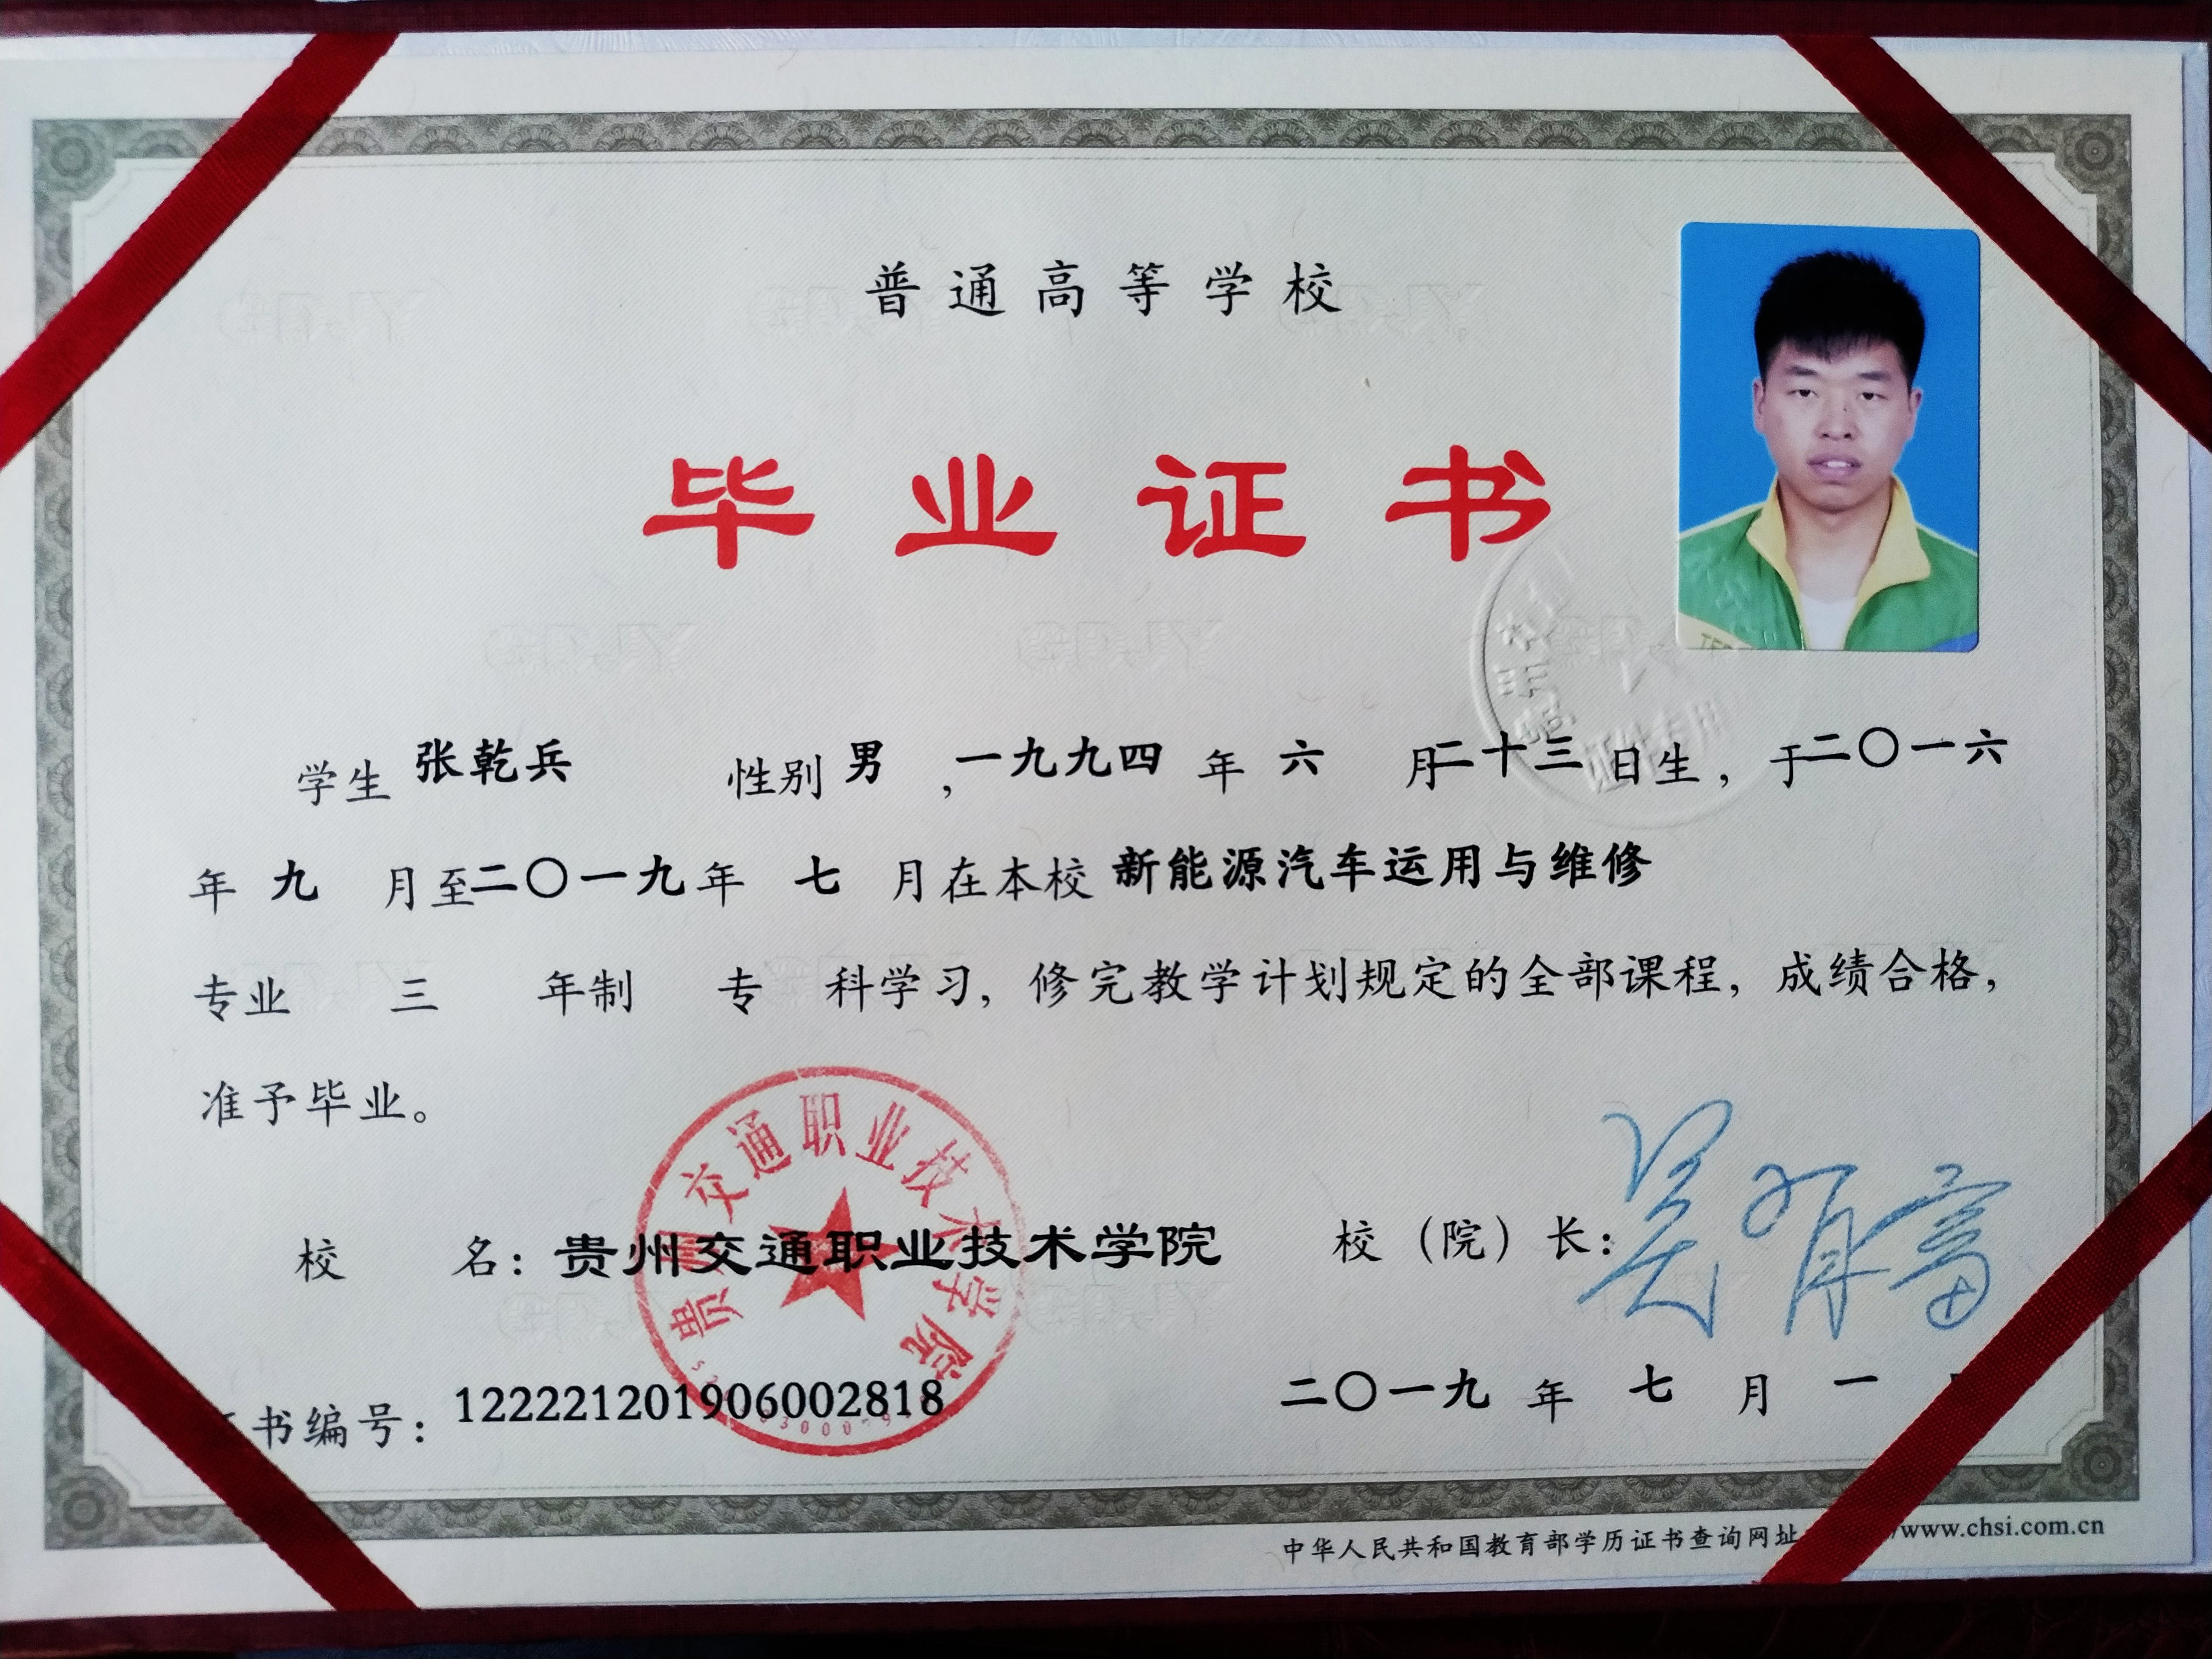 普通高等学校
毕业证书
学生 张乾兵 性别 男 ,一九九四 年 六 月二十三日生，于二〇一六
年 九 月至二〇一九年 七 月在本校 新能源汽车运用与维修
专业 三 年制 专 科学习，修完教学计划规定的全部课程，成绩合格，
准予毕业。
贵州交通职业技术学院
校 名：贵州交通职业技术学院 校（院）长：吴有富
书编号：122221201906002818 二〇一九 年 七 月 一
中华人民共和国教育部学历证书查询网址 /www.chsi.com.cn
证件专用